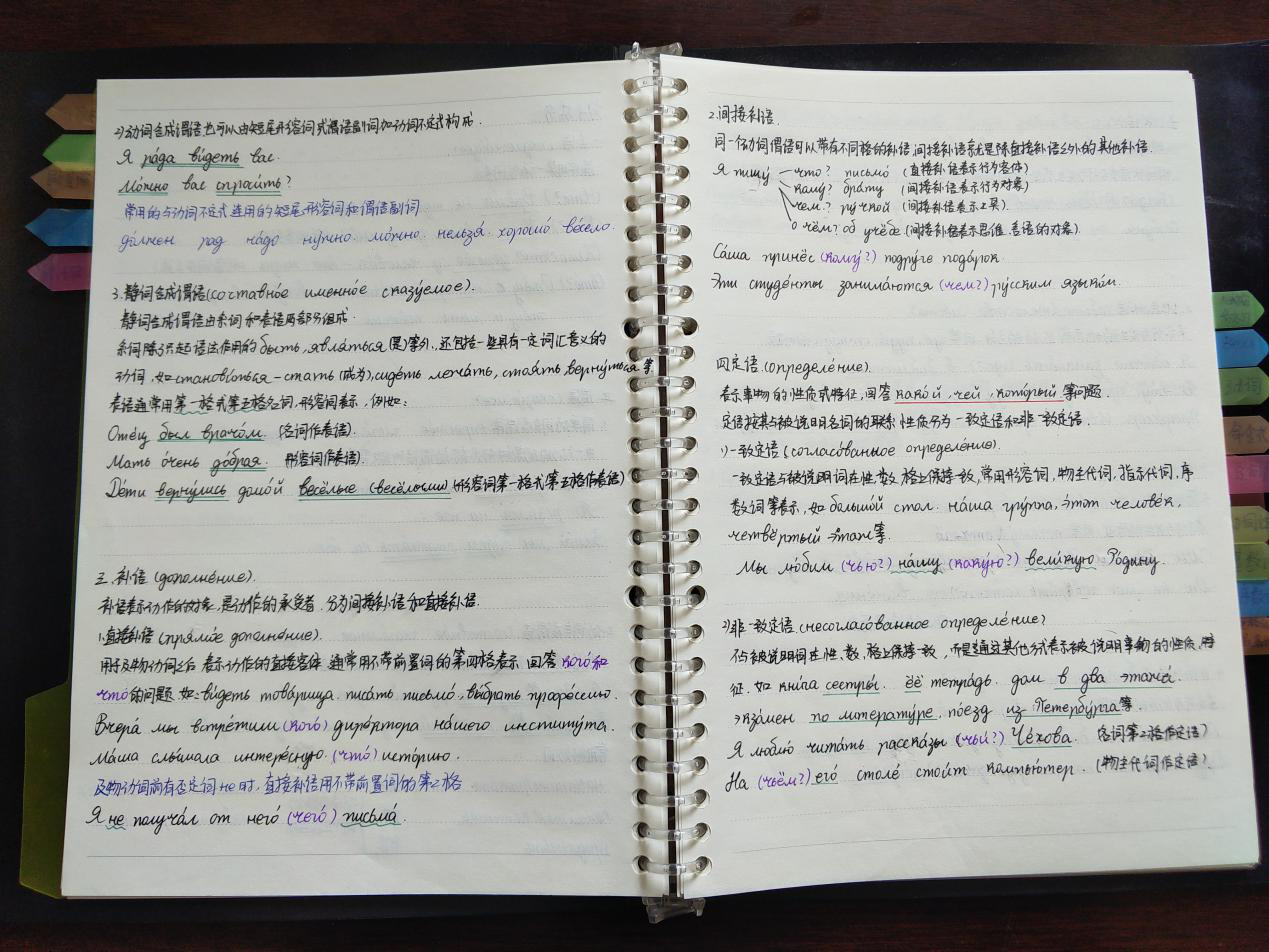 2)动词合成谓语也可以由短尾形容词或谓语副词加动词不定式构成.
Я ра́да ви́деть вас.
Мо́жно вас спроси́ть?
常用的与动词不定式连用的短尾形容词和谓语副词
до́лжен рад на́до ну́жно мо́жно нельзя́ хорошо́ ве́село.
3.静词合成谓语(составно́е именно́е сказу́емое).
静词合成谓语由系词和表语两部分组成.
系词除了只起语法作用的быть, явля́ться(是)等外,还包括一些具有一定词汇意义的
动词,如станови́ться-стать(成为), сиде́ть лежа́ть, стоя́ть, верну́ться等
表语通常用第一格或第五格名词,形容词表示,例如:
Оте́ц был врачо́м. (名词作表语).
Мать о́чень до́брая. (形容词作表语).
Де́ти верну́лись домо́й весёлые (весёлыми) (形容词第一格或第五格作表语)
三.补语 (дополне́ние).
补语表示动作的对象,是动作的承受者.分为间接补语和直接补语.
1.直接补语(прямо́е дополне́ние).
用于及物动词之后 表示动作的直接客体.通常用不带前置词的第四格表示,回答кого́和
что́的问题.如:ви́деть това́рища. писа́ть письмо́, вы́брать профе́ссию.
Вчера́ мы встре́тили (кого́) дире́ктора на́шего институ́та.
Ма́ша слы́шала интере́сную (что́) исто́рию.
及物动词前有否定词не时,直接补语用不带前置词的第二格
Я не получа́л от него́ (чего́) письма́.
2.间接补语.
同一个动词谓语可以带有不同格的补语,间接补语就是除直接补语之外的其他补语.
Я пишу́ что? письмо́ (直接补语表示行为客体)
кому́? бра́ту (间接补语表示行为对象)
чем? ру́чкой (间接补语表示工具)
о чём? об учёбе (间接补语表示思维、言语的对象).
Са́ша принёс (кому́?) подру́ге пода́рок.
Э́ти студе́нты занима́ются (чем?) ру́сским языко́м.
四.定语.(определе́ние).
表示事物的性质或特征,回答како́й, чей, кото́рый 等问题.
定语按其与被说明名词的联系性质分为一致定语和非一致定语.
1)一致定语(согласо́ванное определе́ние).
一致定语与被说明词在性、数、格上保持一致,常用形容词,物主代词,指示代词,序
数词等表示,如большо́й стол. на́ша гру́ппа, э́тот челове́к,
четвёртый эта́ж等.
Мы лю́бим (чью?) на́шу (каку́ю?) вели́кую Ро́дину.
2)非一致定语(несогласо́ванное определе́ние?
不与被说明词在性、数、格上保持一致,而是通过其他方式表示被说明事物的性质、特
征. 如 кни́га сестры́. её тетра́дь. дом в два этажа́.
экза́мен по литерату́ре, по́езд из Петербу́рга等.
Я люблю́ чита́ть расска́зы (чьи?) Че́хова. (名词第二格作定语)
На (чьём?) его́ столе́ стои́т компью́тер. (物主代词作定语)